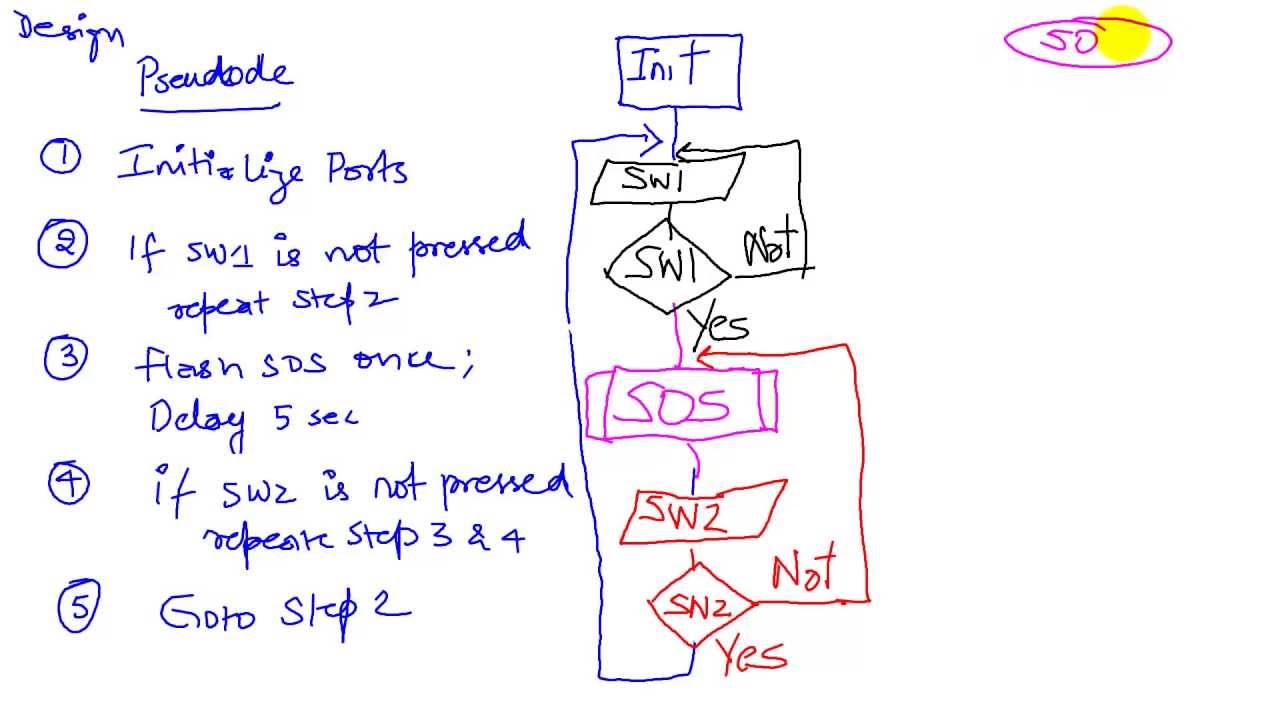 Design
Pseudode
1 Initialize Ports
2 If SW1 is not pressed
repeat step 2
3 flash SOS once;
Delay 5 sec
4 if SW2 is not pressed
repeate step 3 & 4
5 Goto Step 2
Init
SW1
SW1
Not
Yes
SOS
SW2
SW2
Not
Yes
SO